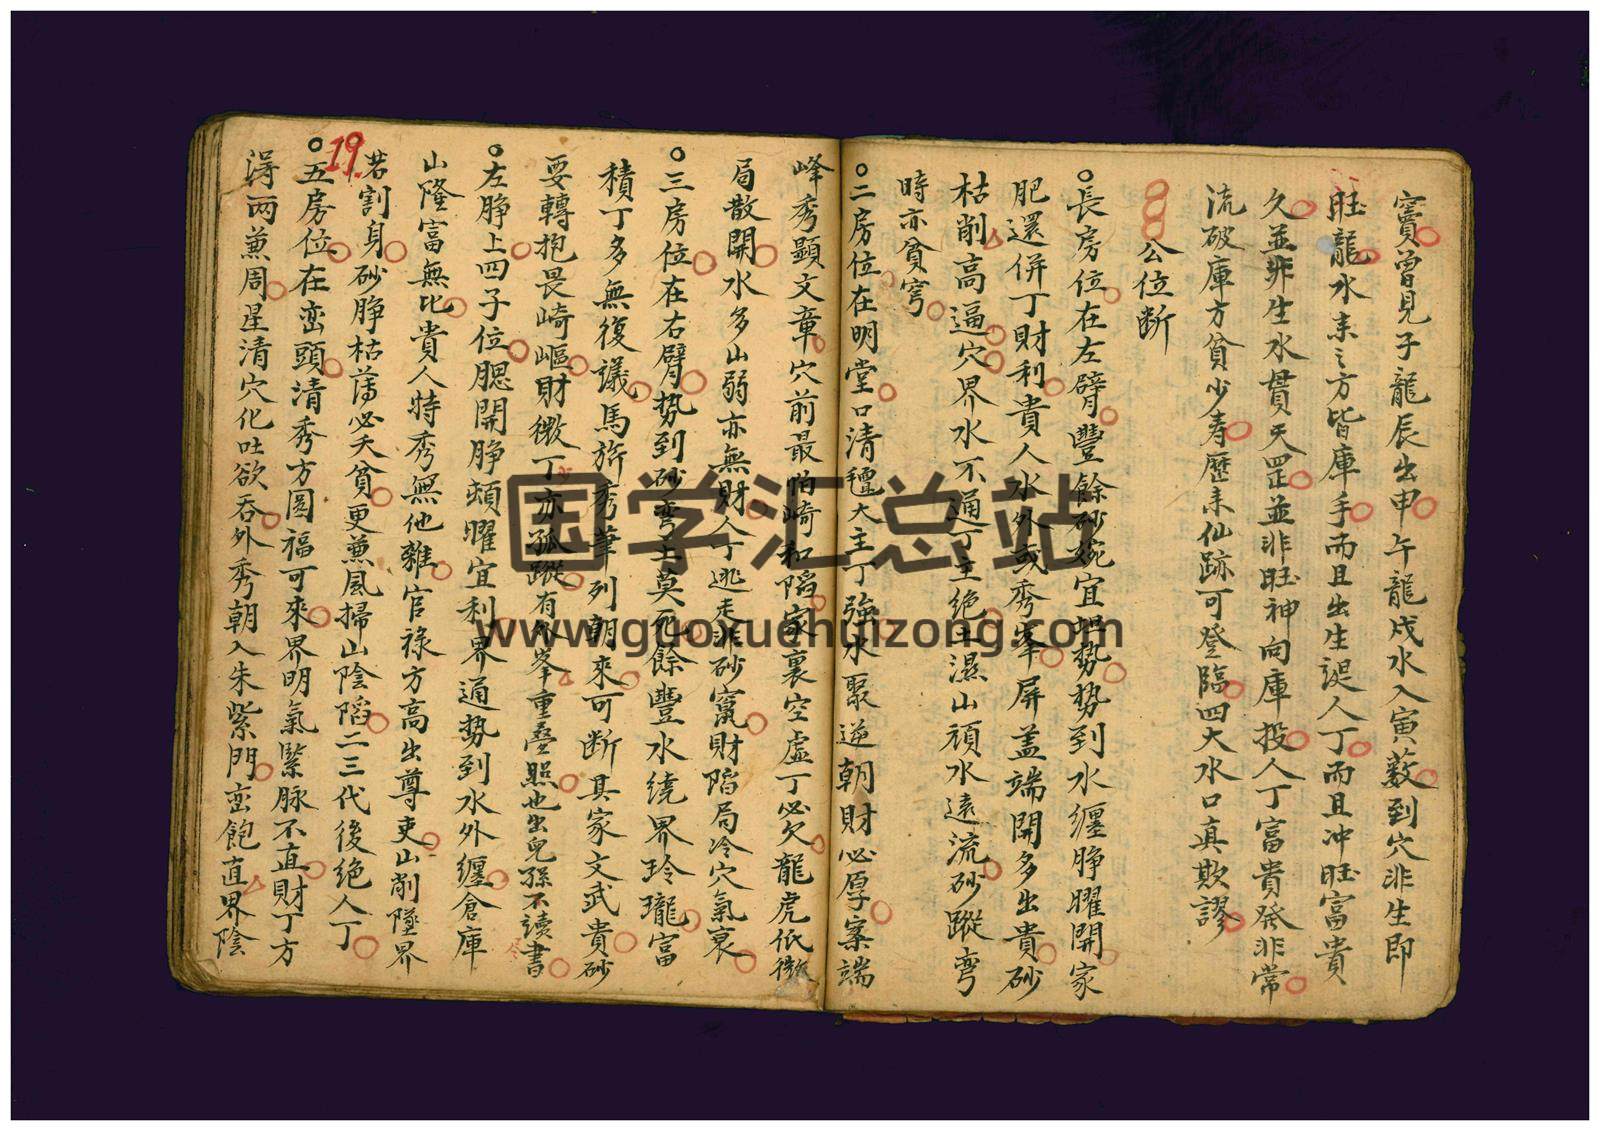 竇曾見子龍辰出申午龍戌水入寅薮到穴非生即
旺龍水来之方皆庫手而且出生誕人丁而且冲旺富貴
久並非生水貫天罡並非旺神向庫投人丁富貴発非常
流破庫方貧少寿歴来仙跡可登臨四大水口真欺謬
公位断
長房位在左臂豐餘砂婉宜蜎势势到水纏脖曜開家
肥還併丁財利貴人水外或秀峯屏盖端開多出貴砂
枯削高逼穴界水不通丁主绝土濕山頑水遠流砂蹤弯
時亦貧穹
二房位在明堂口清大主丁強水聚逆朝財必厚案端
峰秀顯文章穴前最怕崎和陷家裏空虚丁必欠龍虎低微
局散開水多山弱亦無財人丁逃走非砂窩財陷局冷穴氣衰
三房位在右臂势到砂弯土莫死餘豐水绕界玲瓏富
積丁多無復議馬旂秀筆列朝来可断其家文武貴砂
要轉抱畏崎嶇財微丁亦孤蹤有外峯重叠照也出兒孫不讀書
左脖上四子位腮開脖頓曜宜利界通势到水外纏倉庫
山隆富無比貴人特秀無他雜官禄方高出尊吏山削墜界
若割身砂脖枯蕩必夭貧更兼風掃山陰陷二三代後绝人丁
19.
五房位在峦頭清秀方圓福可來界明氣緊脉不直財丁方
淂两兼周星清穴化吐欲吞外秀朝入朱紫門峦飽直界陰
国学汇总站
www.guoxuehuizong.com